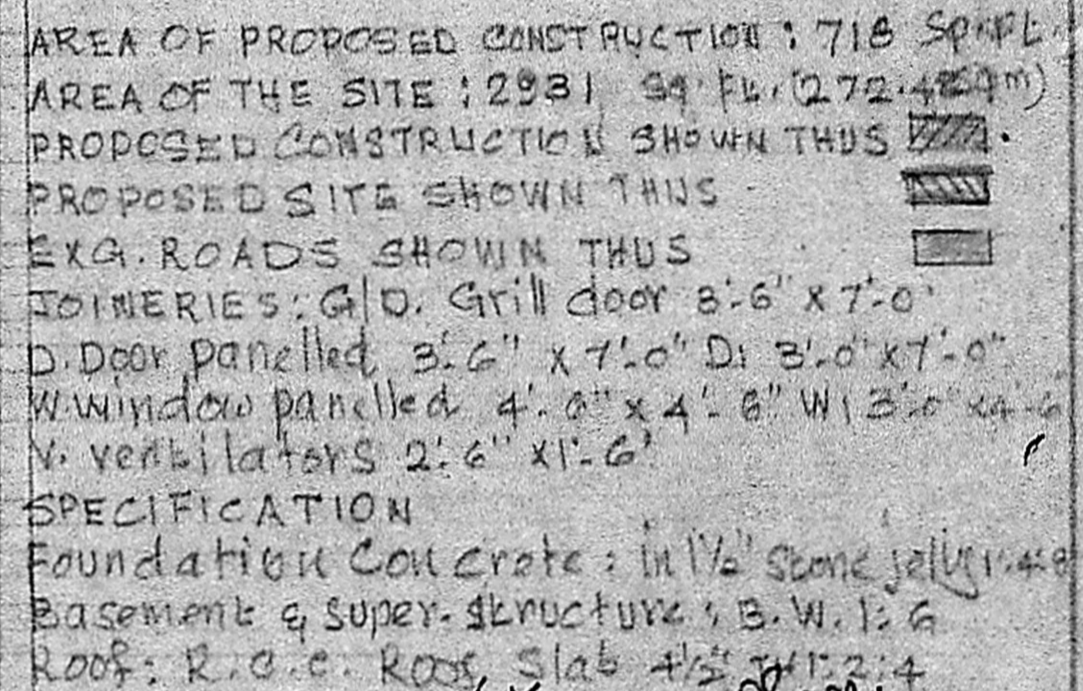 AREA OF PROPOSED CONSTRUCTION : 718 Sq. Ft.
AREA OF THE SITE : 2931 Sq. Ft. (272.
PROPOSED CONSTRUCTION SHOWN THUS
PROPOSED SITE SHOWN THUS
EXG. ROADS SHOWN THUS
JOINERIES: G/D. Grill door 3'-6" X 7'-0"
D. Door panelled 3'-6" X 7'-0" D1 3'-0" X 7'-0"
W. Window panelled 4'-0" x 4'-6" W1 3'-0" x 4'-6
V. ventilators 2'-6" X 1'-6"
SPECIFICATION
Foundation Concrete : in 1½" Stone jelly 1:4:8
Basement & super-structure : B.W. 1:6
Roof: R.C.C. Roof Slab 4½" 1:2:4